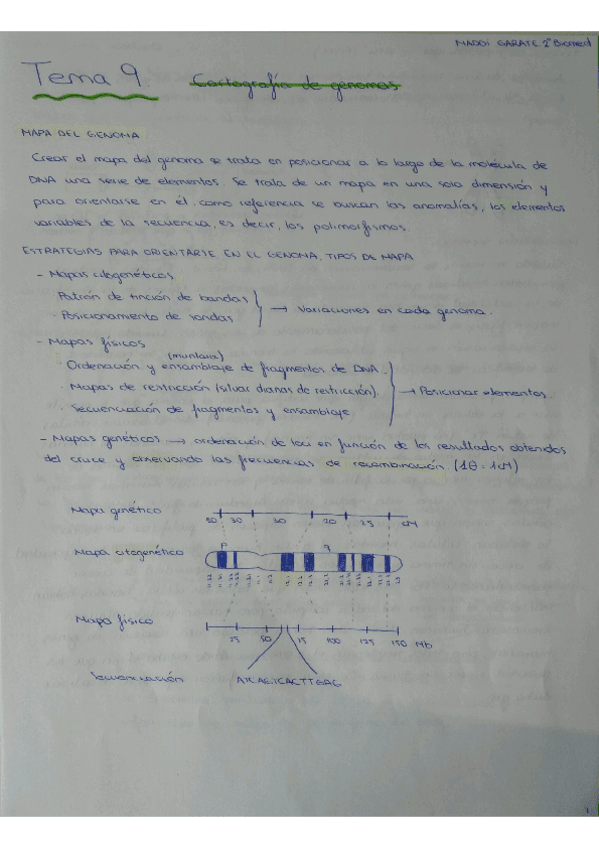 MADDI GARATE 2º Biomed
Tema 9. Cartografía de genomas
MAPA DEL GENOMA
Crear el mapa del genoma se trata en posicionar a lo largo de la molécula de
DNA una serie de elementos. Se trata de un mapa en una sola dimensión y
para orientarse en él, como referencia se buscan las anomalías, los elementos
variables de la secuencia, es decir, los polimorfismos.
ESTRATEGIAS PARA ORIENTARSE EN EL GENOMA, TIPOS DE MAPA
- Mapas citogenéticos
Patrón de tinción de bandas
· Posicionamiento de sondas
→ Variaciones en cada genoma.
- Mapas físicos
(muntaia)
· Ordenación y ensamblaje de fragmentos de DNA.
· Mapas de restricción (situar dianas de restricción).
· Secuenciación de fragmentos y ensamblaje
→ Posicionar elementos.
- Mapas genéticos → ordenación de loci en función de los resultados obtenidos
del cruce y observando las frecuencias de recombinación. (1θ = 1cM)
Mapa genético
30 30 20 25 cM
Mapa citogenético
p q
Mapa físico
25 50 15 100 125 150 Mb
Secuenciación
1